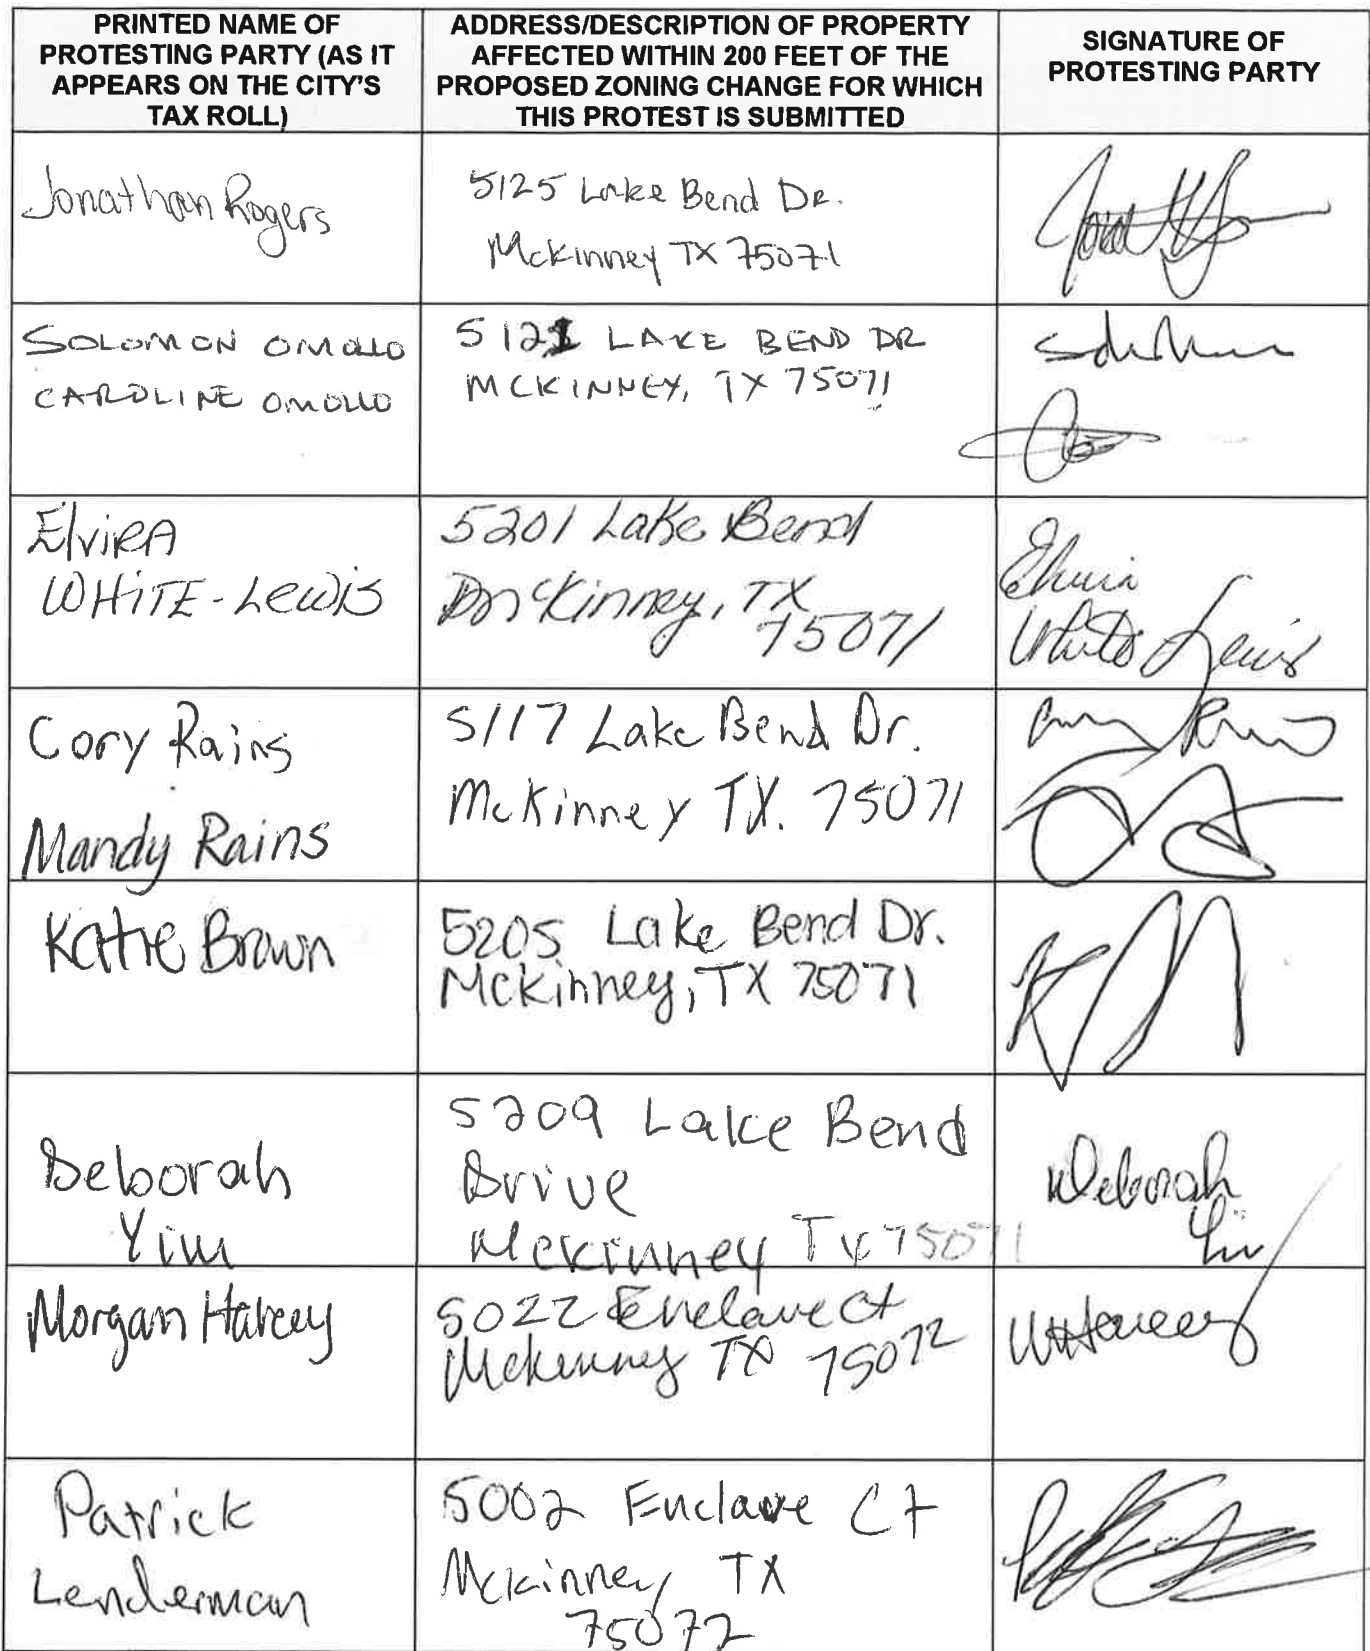 PRINTED NAME OF
PROTESTING PARTY (AS IT
APPEARS ON THE CITY'S
TAX ROLL)
ADDRESS/DESCRIPTION OF PROPERTY
AFFECTED WITHIN 200 FEET OF THE
PROPOSED ZONING CHANGE FOR WHICH
THIS PROTEST IS SUBMITTED
SIGNATURE OF
PROTESTING PARTY
Jonathan Rogers
5125 Lake Bend Dr.
McKinney TX 75071
SOLOMON OMOLLO
CAROLINE OMOLLO
5121 LAKE BEND DR
MCKINNEY, TX 75071
ElviRA
WHiTE-LewiS
5201 Lake Bend
McKinney, TX
75071
Elvira
White Lewis
Cory Rains
Mandy Rains
5117 Lake Bend Dr.
McKinney TX. 75071
Katie Brown
5205 Lake Bend Dr.
McKinney, TX 75071
Deborah
Yim
5209 Lake Bend
Drive
McKinney Tx 75071
Deborah
Morgan Harvey
5022 Enclave Ct
McKinney TX 75072
MHarvey
Patrick
Lenderman
5002 Enclave Ct
McKinney TX
75072